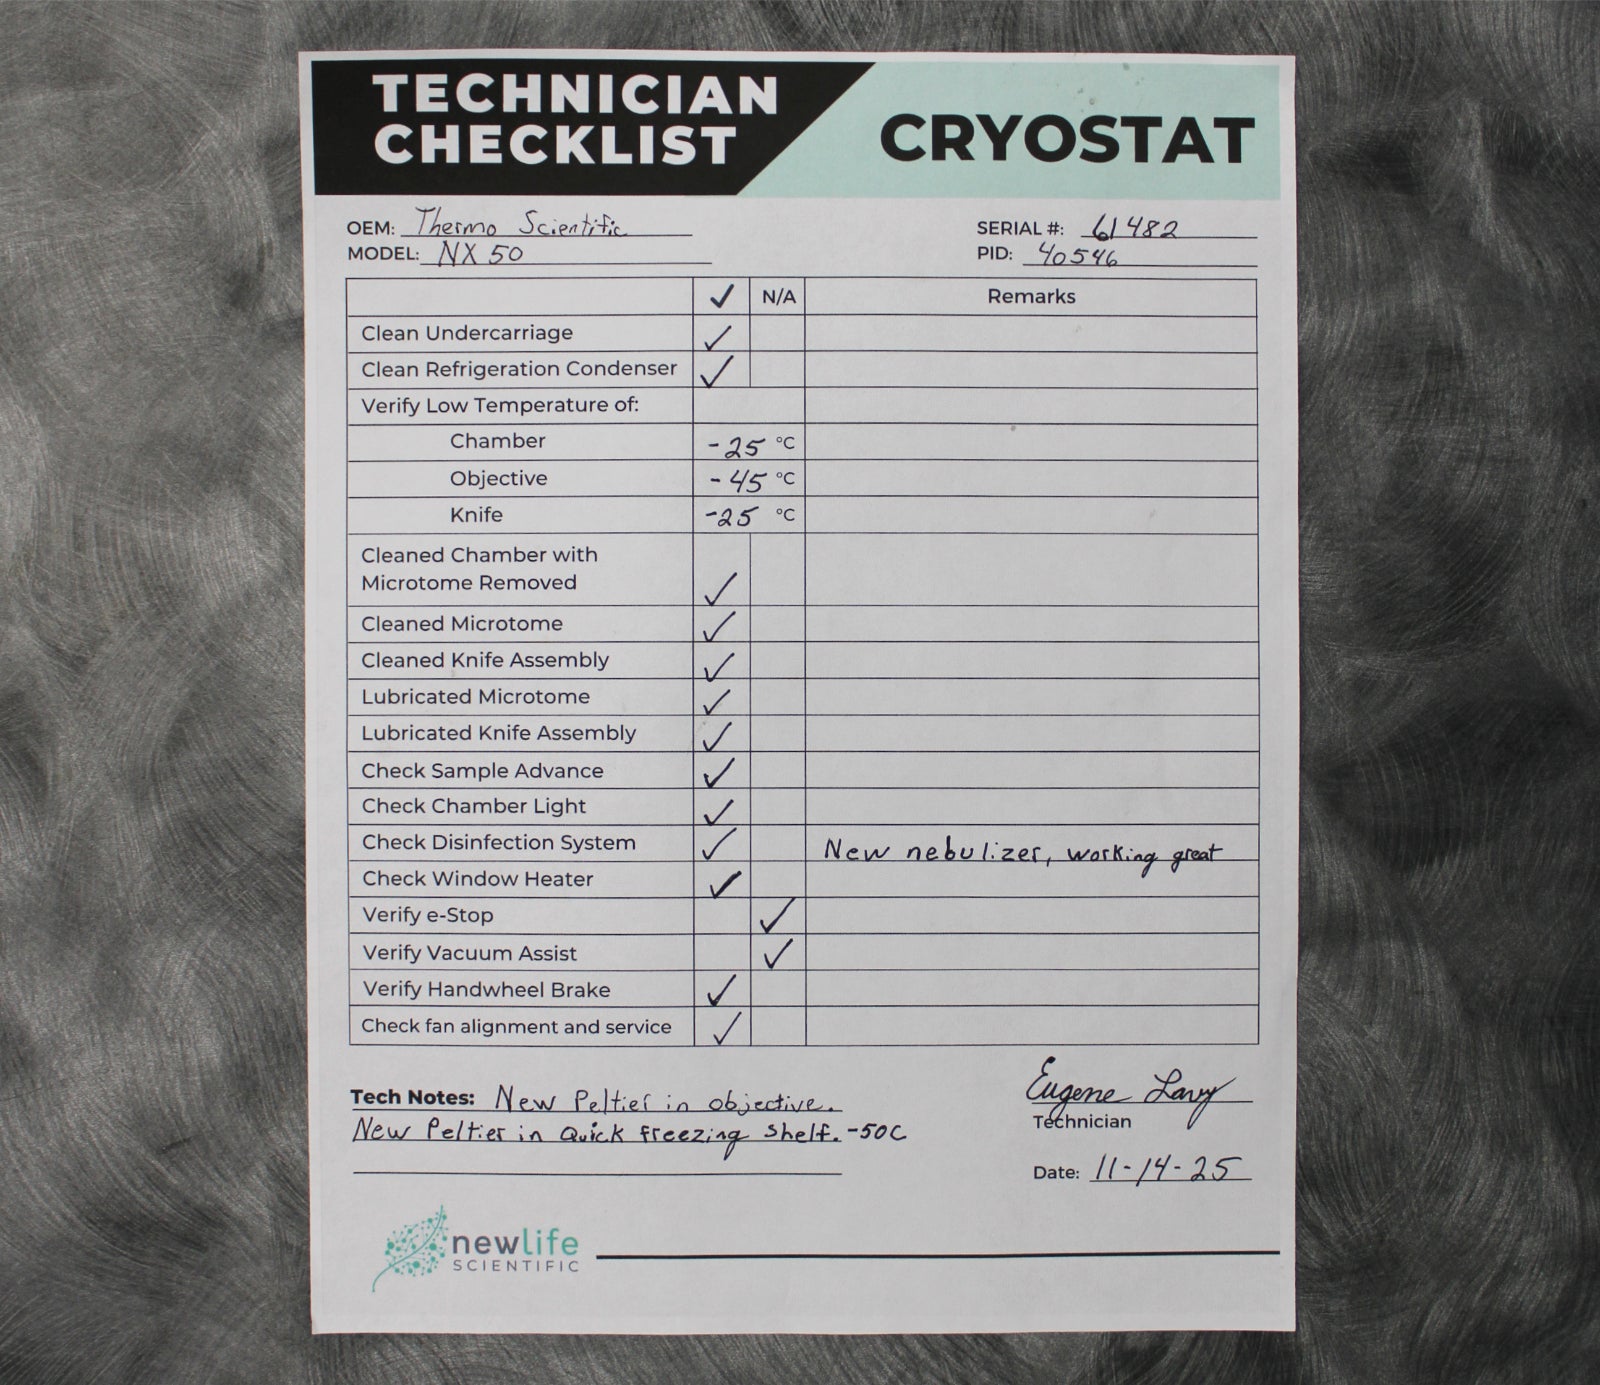 TECHNICIAN
CHECKLIST
CRYOSTAT
OEM: Thermo Scientific
SERIAL #: 61482
MODEL: NX 50
PID: 40546
✓ N/A Remarks
Clean Undercarriage ✓
Clean Refrigeration Condenser ✓
Verify Low Temperature of:
Chamber -25 °C
Objective -45 °C
Knife -25 °C
Cleaned Chamber with
Microtome Removed ✓
Cleaned Microtome ✓
Cleaned Knife Assembly ✓
Lubricated Microtome ✓
Lubricated Knife Assembly ✓
Check Sample Advance ✓
Check Chamber Light ✓
Check Disinfection System ✓ New nebulizer, working great
Check Window Heater ✓
Verify e-Stop ✓
Verify Vacuum Assist ✓
Verify Handwheel Brake ✓
Check fan alignment and service ✓
Tech Notes: New Peltier in objective.
New Peltier in Quick freezing shelf. -50C
Eugene
Technician
Date: 11-14-25
newlife
SCIENTIFIC